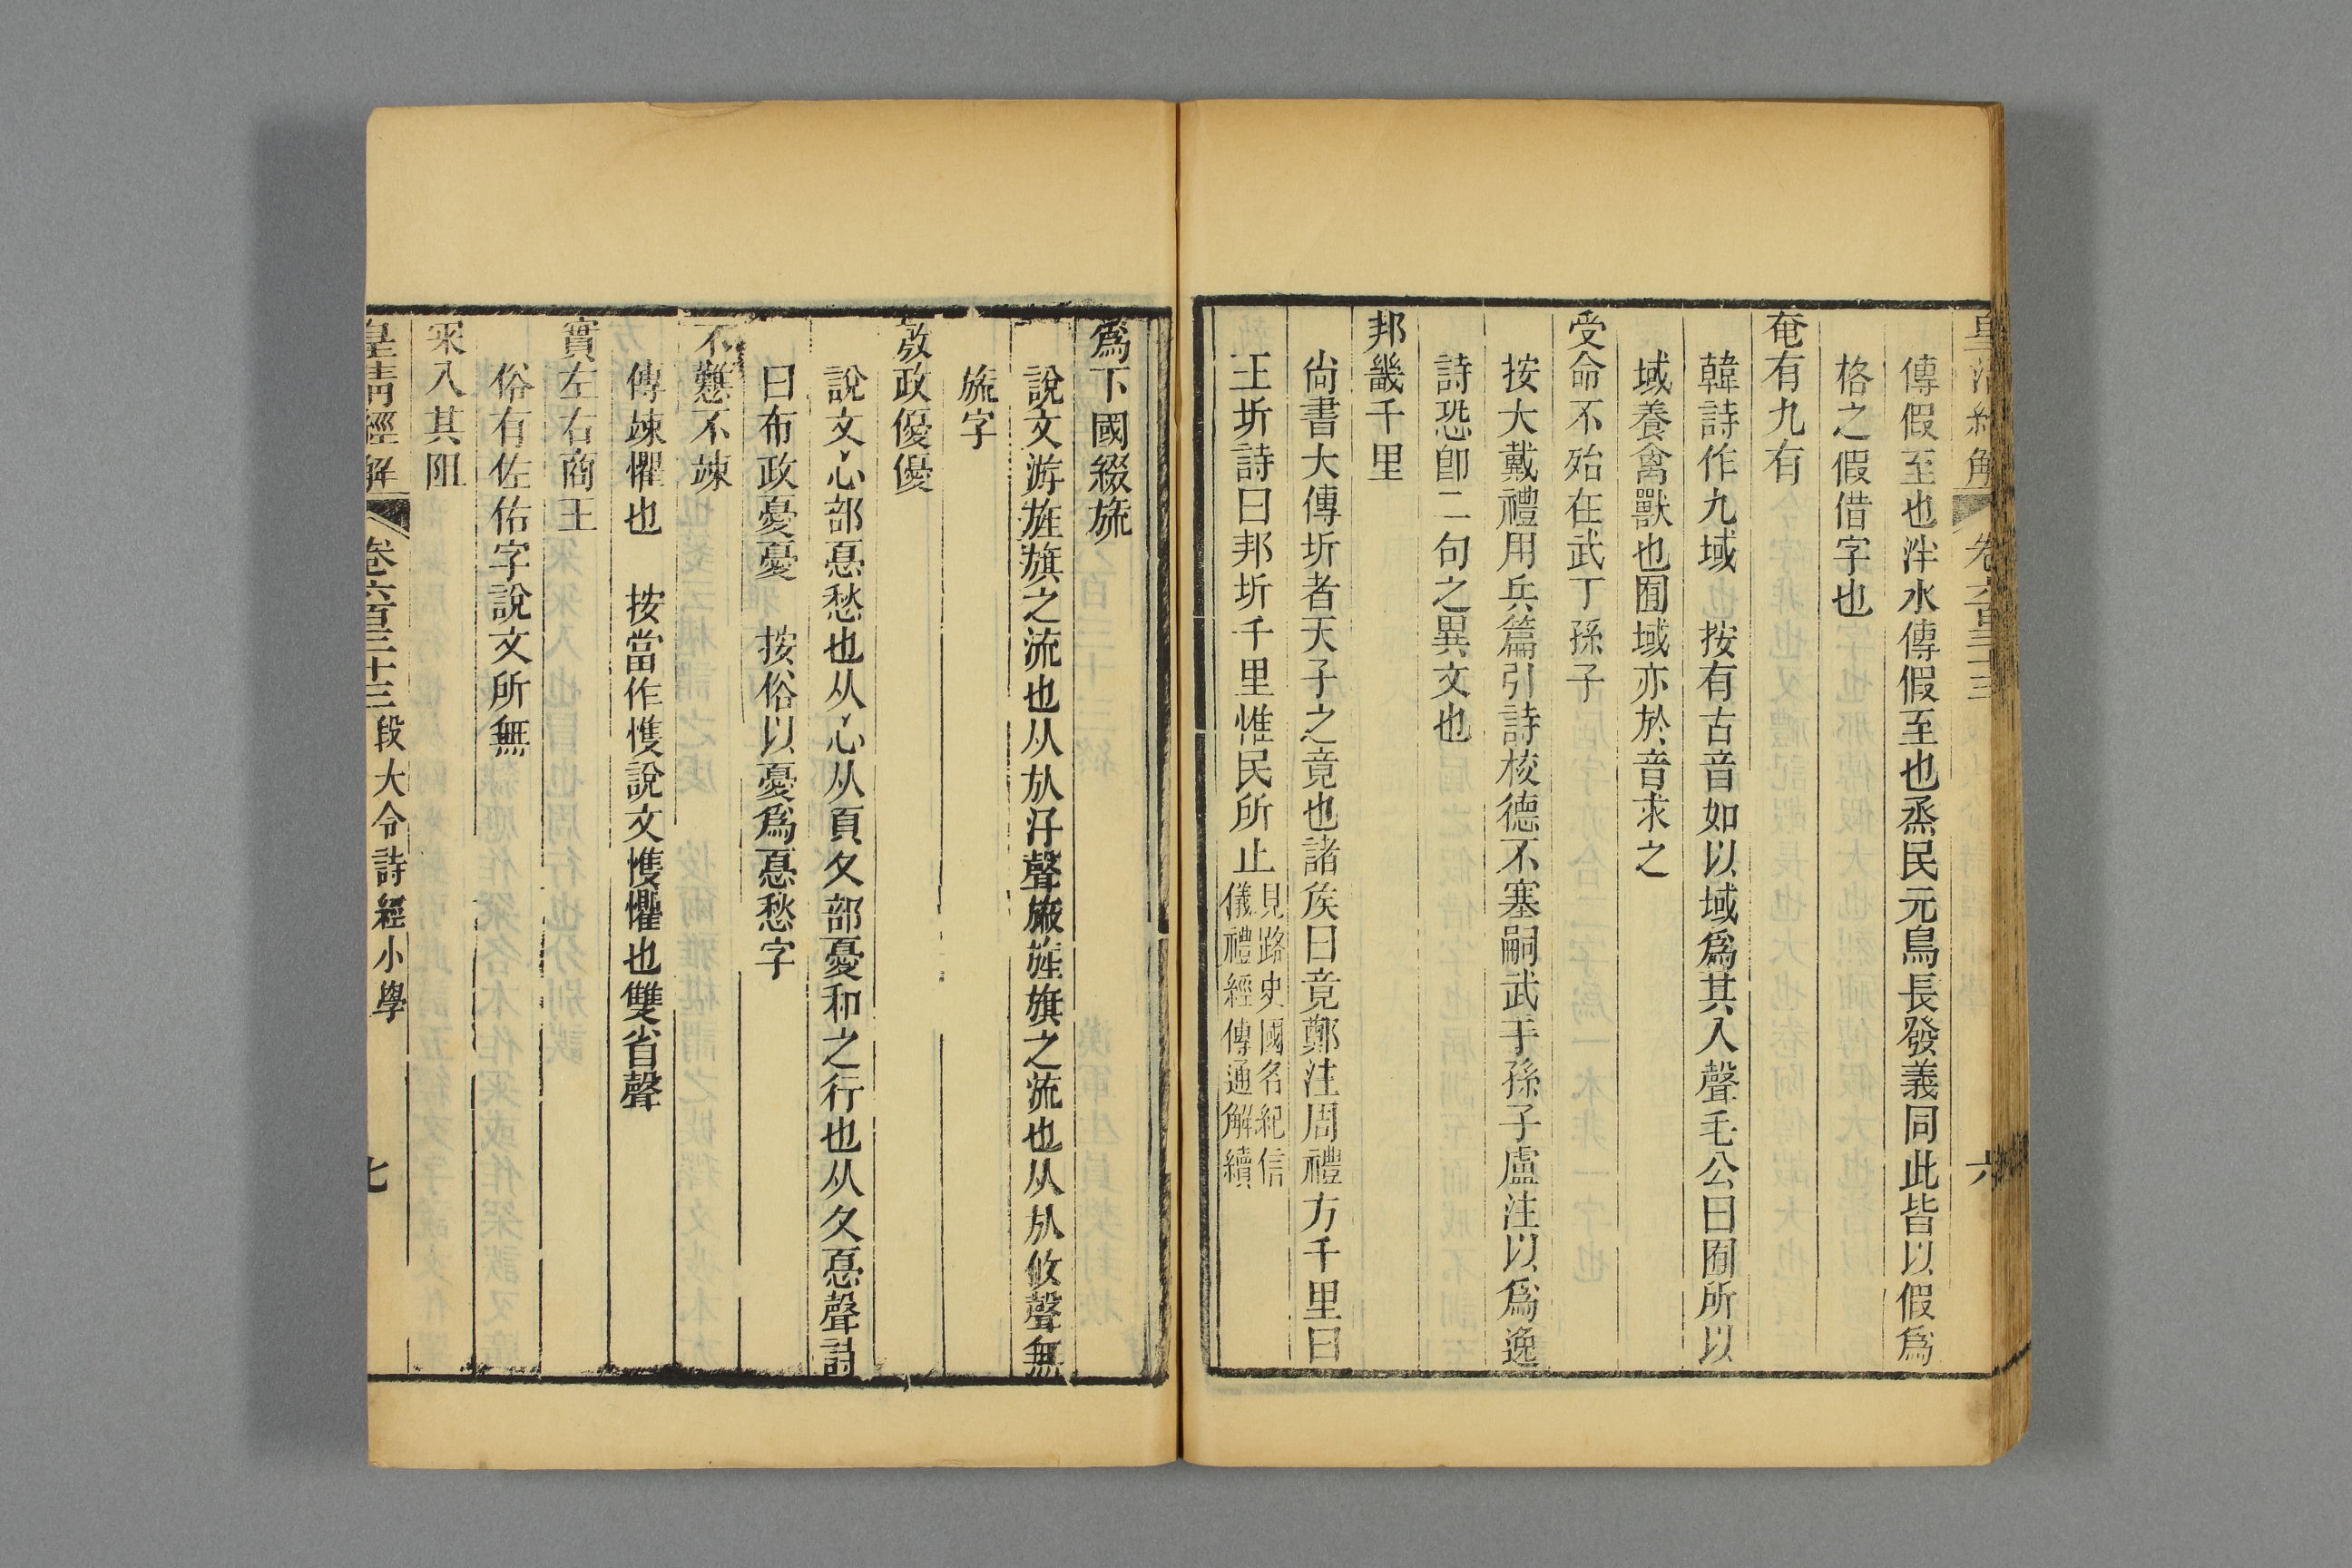 皇清經解 卷六百三十三 六
傳假至也泮水傳假至也烝民元鳥長發義同此皆以假爲
格之假借字也
奄有九有
韓詩作九域 按有古音如以域爲其入聲毛公曰囿所以
域養禽獸也囿域亦於音求之
受命不殆在武丁孫子
按大戴禮用兵篇引詩校德不塞嗣武于孫子盧注以爲逸
詩恐卽二句之異文也
邦畿千里
尙書大傳圻者天子之竟也諸矦曰竟鄭注周禮方千里曰
王圻詩曰邦圻千里惟民所止見路史國名紀信
儀禮經傳通解續
爲下國綴旒
說文游旌旗之流也从㫃汓聲旚旌旗之流也从㫃攸聲無
旒字
敷政優優
說文心部㥑愁也从心从頁夂部憂和之行也从夂㥑聲詩
曰布政憂憂 按俗以憂爲㥑愁字
不戁不竦
傳竦懼也 按當作愯說文愯懼也雙省聲
實左右商王
俗有佐佑字說文所無
罙入其阻
皇清經解 卷六百三十三 段大令詩經小學 七